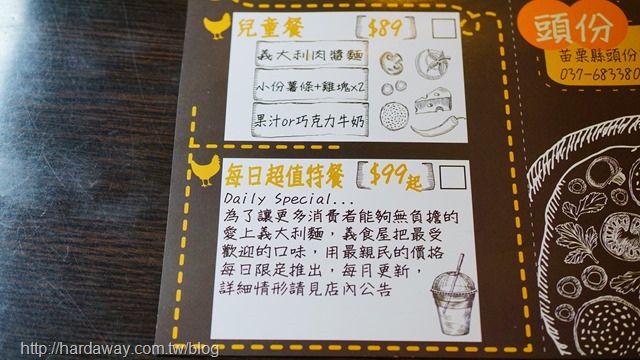 兒童餐 $89
義大利肉醬麵
小份薯條+雞塊x2
果汁or巧克力牛奶
每日超值特餐 $99起
Daily Special...
為了讓更多消費者能夠無負擔的
愛上義大利麵，義食屋把最受
歡迎的口味，用最親民的價格
每日限定推出，每月更新，
詳細情形請見店內公告
頭份
苗栗縣頭份
037-683380
http://hardaway.com.tw/blog